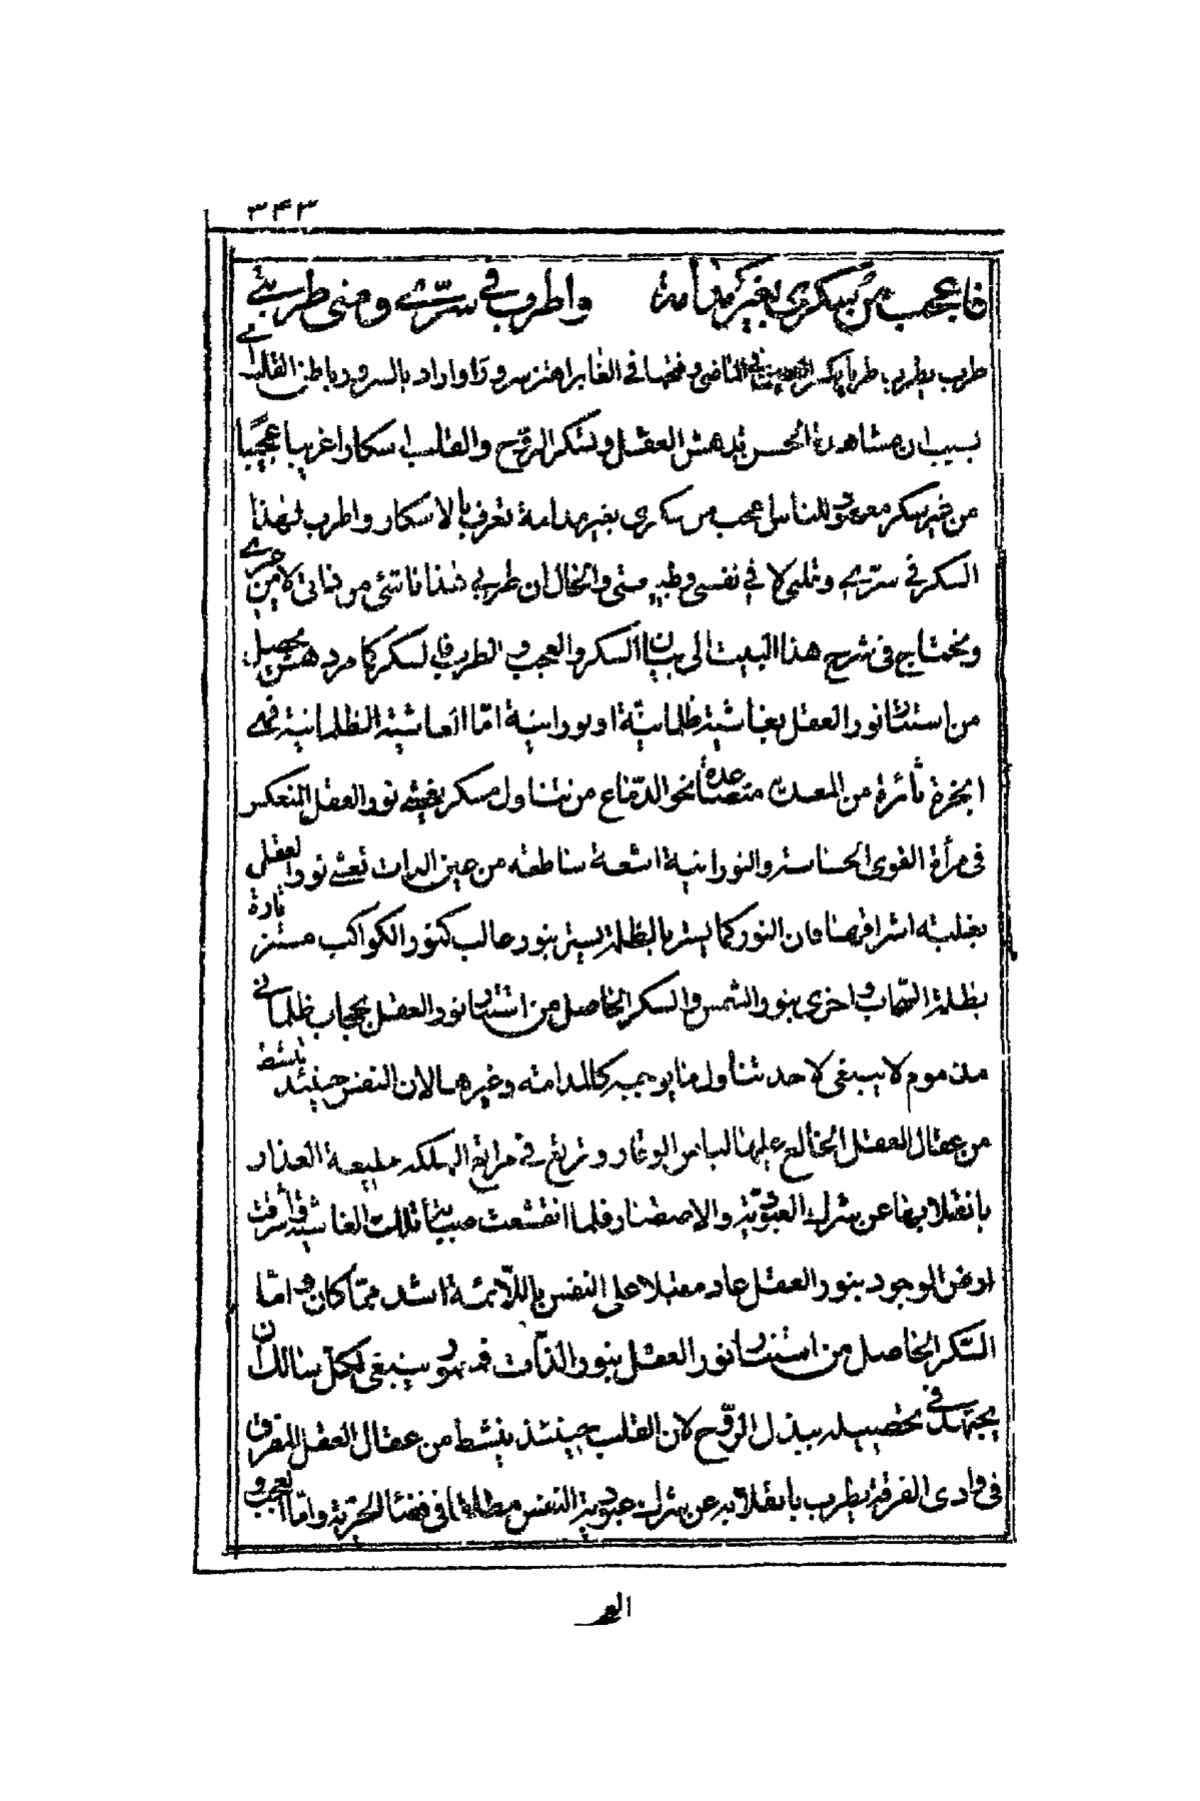 ۳۴۳
فاعجب من سكري بغير مدامة واطرب في سرّي ومني طربتي
طرب يطرب طربا بكسر العين في الماضي وفتحها في الغابر اهتز سرورا واراد بالسر ورباطن القلب اي
بسبب ان مشاهدة الحسن تدهش العقل وتسكر الروح والقلب اسكارا غريبا عجيبا
من غير سكر معهود للناس اعجب من سكري بغير مدامة تعرف بالاسكار واطرب لهذا
السكر في سرّي وقلبي لا في نفسي وطبعي ومني والحال ان طربي هذا ناشئ من ذاتي لا من غيري
ويحتاج في شرح هذا البيت الى بيان السكر والعجب والطرب فالسكر كما مر دهش يحصل
من استتار نور العقل بغاشية ظلمانيّة او نورانية امّا الغاشية الظلمانية فهي
ابخرة ثائرة من المعدة متصاعدة نحو الدّماغ من تناول مسكر يغشي نور العقل المنعكس
في مرأة القوى الحساسة والنورانية اشعة ساطعه من عين الذات تغشي نور العقل
بغلبة اشراقها فان النور كما يستر بالظلمة يستر بنور غالب كنور الكواكب مستتر تارة
بظلمة السّحاب واخرى بنور الشمس والسكر الحاصل من استتار نور العقل بحجاب ظلماني
مذموم لا ينبغي لاحد تناول ما يوجبه كالمدامة وغيرها لان النفس حينئذ تنشط
من عقال العقل الخالع عليها لباس الوقار وتربع في مراتع الهلكة خليعة العذار
بانقلابها عن شرك العبودية والاصطبار فلما انقشعت ضبابة تلك الغاشية واشرقت
ارض الوجود بنور العقل عاد مقبلا على النفس باللّائمة اشد ممّا كان وامّا
السّكر الحاصل من استتار نور العقل بنور الذّات فمبرور ينبغي لكل سالك ان
يجتهد في تحصيله ببذل الرّوح لان القلب حينئذ ينشط من عقال العقل المفرق
في وادى الفرقة يطرب بانقلابه عن شرك عبودية النفس مطلقا في فضاء الحرّية وامّا العجب و